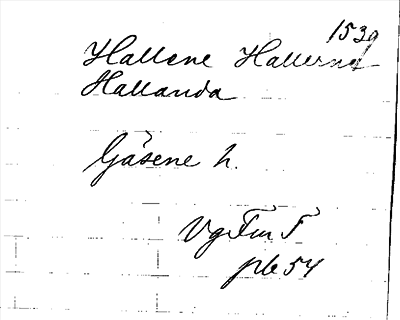 1539
Hallene Hallernd
Hallanda
Gäsene h.
VgFmT
pb 54